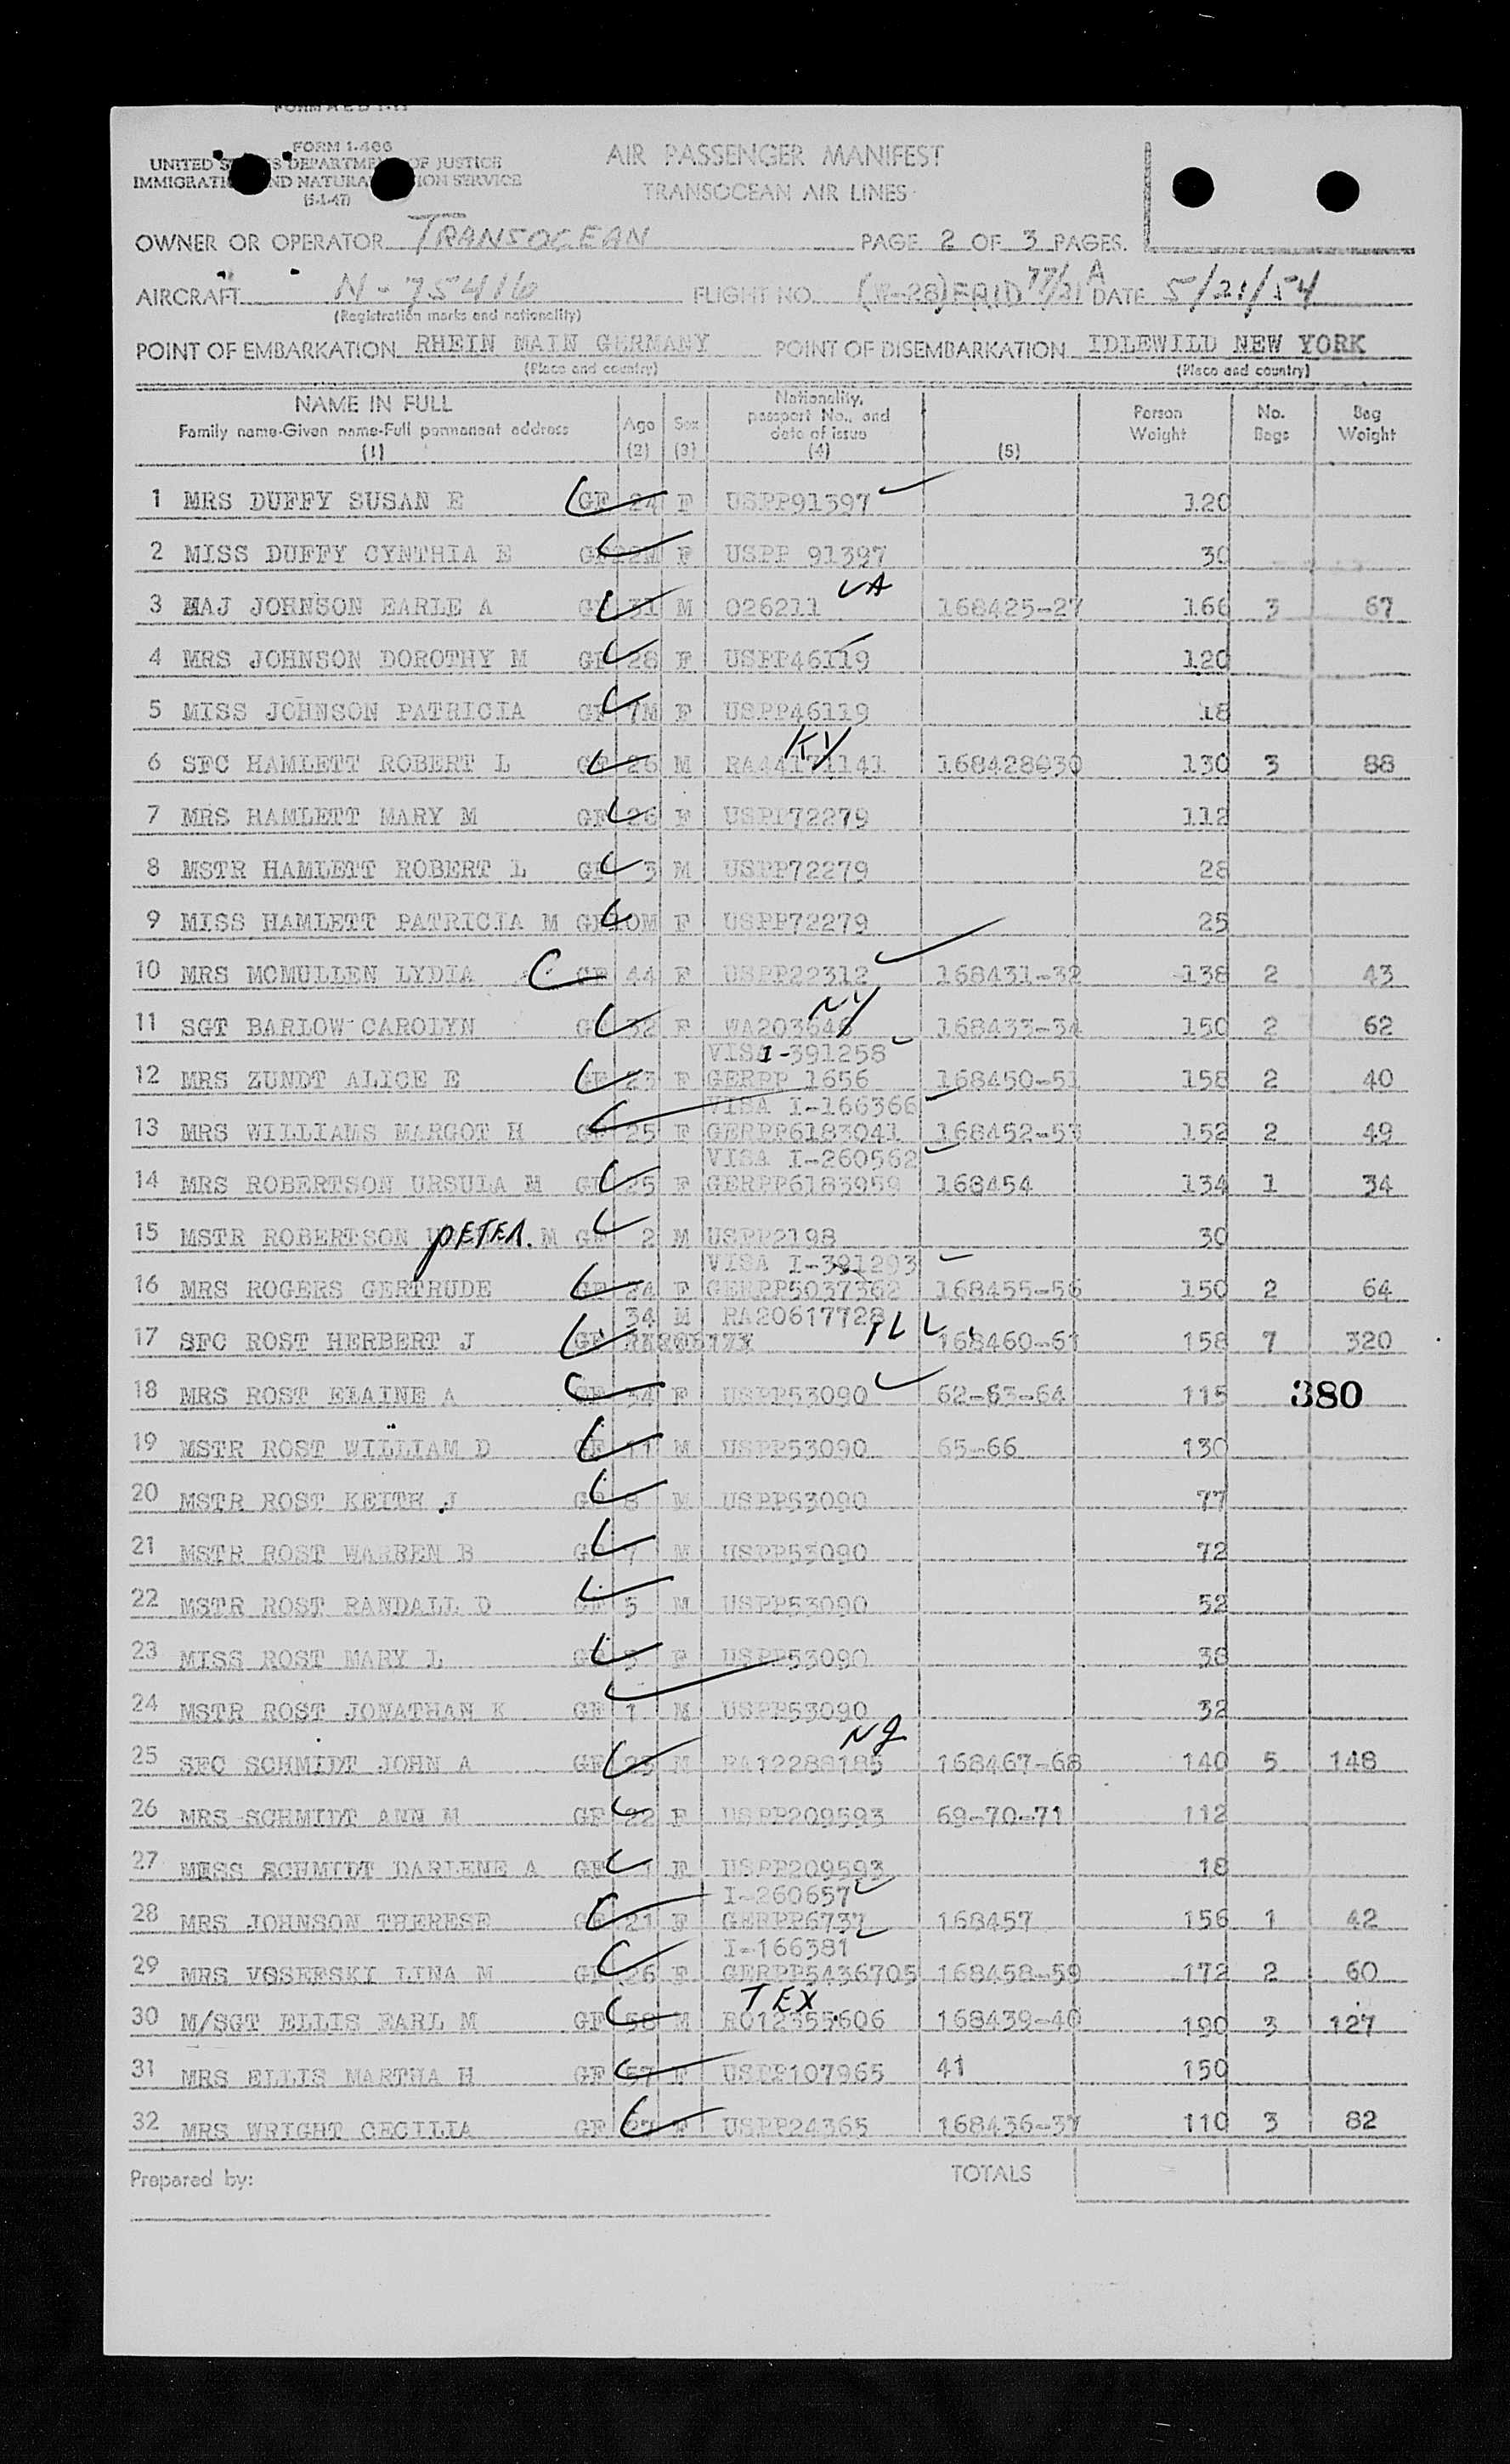 FORM I-466
UNITED STATES DEPARTMENT OF JUSTICE
IMMIGRATION AND NATURALIZATION SERVICE
(5-1-47)
AIR PASSENGER MANIFEST
TRANSOCEAN AIR LINES
OWNER OR OPERATOR TRANSOCEAN PAGE 2 OF 3 PAGES.
AIRCRAFT N-75416 FLIGHT NO. DATE 5/21/54
(Registration marks and nationality)
POINT OF EMBARKATION RHEIN MAIN GERMANY POINT OF DISEMBARKATION IDLEWILD NEW YORK
(Place and country) (Place and country)
NAME IN FULL
Family name-Given name-Full permanent address
(1)
Age
(2)
Sex
(3)
Nationality,
passport No., and
date of issue
(4)
(5)
Person
Weight
No.
Bags
Bag
Weight
1 MRS DUFFY SUSAN E GF 24 F USPP91397 120
2 MISS DUFFY CYNTHIA E GF 22M F USPP 91397 30
VA
3 MAJ JOHNSON EARLE A GF 31 M 026211 168425-27 166 3 67
4 MRS JOHNSON DOROTHY M GF 28 F USPP46119 120
5 MISS JOHNSON PATRICIA GF 7M F USPP46119 18
KY
6 SFC HAMLETT ROBERT L GF 26 M RA44171141 168428030 130 3 88
7 MRS HAMLETT MARY M GF 26 F USPP72279 112
8 MSTR HAMLETT ROBERT L GF 3 M USPP72279 28
9 MISS HAMLETT PATRICIA M GF 10M F USPP72279 25
10 MRS MCMULLEN LYDIA GF 44 F USPP22312 168431-32 138 2 43
NY
11 SGT BARLOW CAROLYN GF 32 F WA203646 168433-34 150 2 62
VISA I-391258
12 MRS ZUNDT ALICE E GF 23 F GERPP 1656 168450-51 158 2 40
VISA I-166366
13 MRS WILLIAMS MARGOT H GF 25 F GERPP6183041 168452-53 152 2 49
VISA I-260562
14 MRS ROBERTSON URSULA M GF 25 F GERPP6183959 168454 134 1 34
15 MSTR ROBERTSON PETER. M GF 2 M USPP2198 30
VISA I-391293
16 MRS ROGERS GERTRUDE GF 24 F GERPP5037362 168455-56 150 2 64
34 M RA20617728
17 SFC ROST HERBERT J GF ILL. 168460-61 158 7 320
18 MRS ROST ELAINE A GF 34 F USPP53090 62-63-64 115 380
19 MSTR ROST WILLIAM D GF 11 M USPP53090 65-66 130
20 MSTR ROST KEITH J GF 8 M USPP53090 77
21 MSTR ROST WARREN B GF 7 M USPP53090 72
22 MSTR ROST RANDALL D GF 5 M USPP53090 52
23 MISS ROST MARY L GF 3 F USPP53090 38
24 MSTR ROST JONATHAN K GF 1 M USPP53090 32
NJ
25 SFC SCHMIDT JOHN A GF 23 M RA12288185 168467-68 140 5 148
26 MRS SCHMIDT ANN M GF 22 F USPP209593 69-70-71 112
27 MISS SCHMIDT DARLENE A GF 1 F USPP209593 18
I-260657
28 MRS JOHNSON THERESE GF 21 F GERPP6737 168457 156 1 42
I-166381
29 MRS VOSEFSKI LINA M GF 26 F GERPP5436705 168458-59 172 2 60
TEX
30 M/SGT ELLIS EARL M GF 58 M RO12355606 168439-40 190 3 127
31 MRS ELLIS MARTHA H GF 57 F USPP107965 41 150
32 MRS WRIGHT CECILIA GF 27 F USPP24365 168436-37 110 3 82
Prepared by: TOTALS